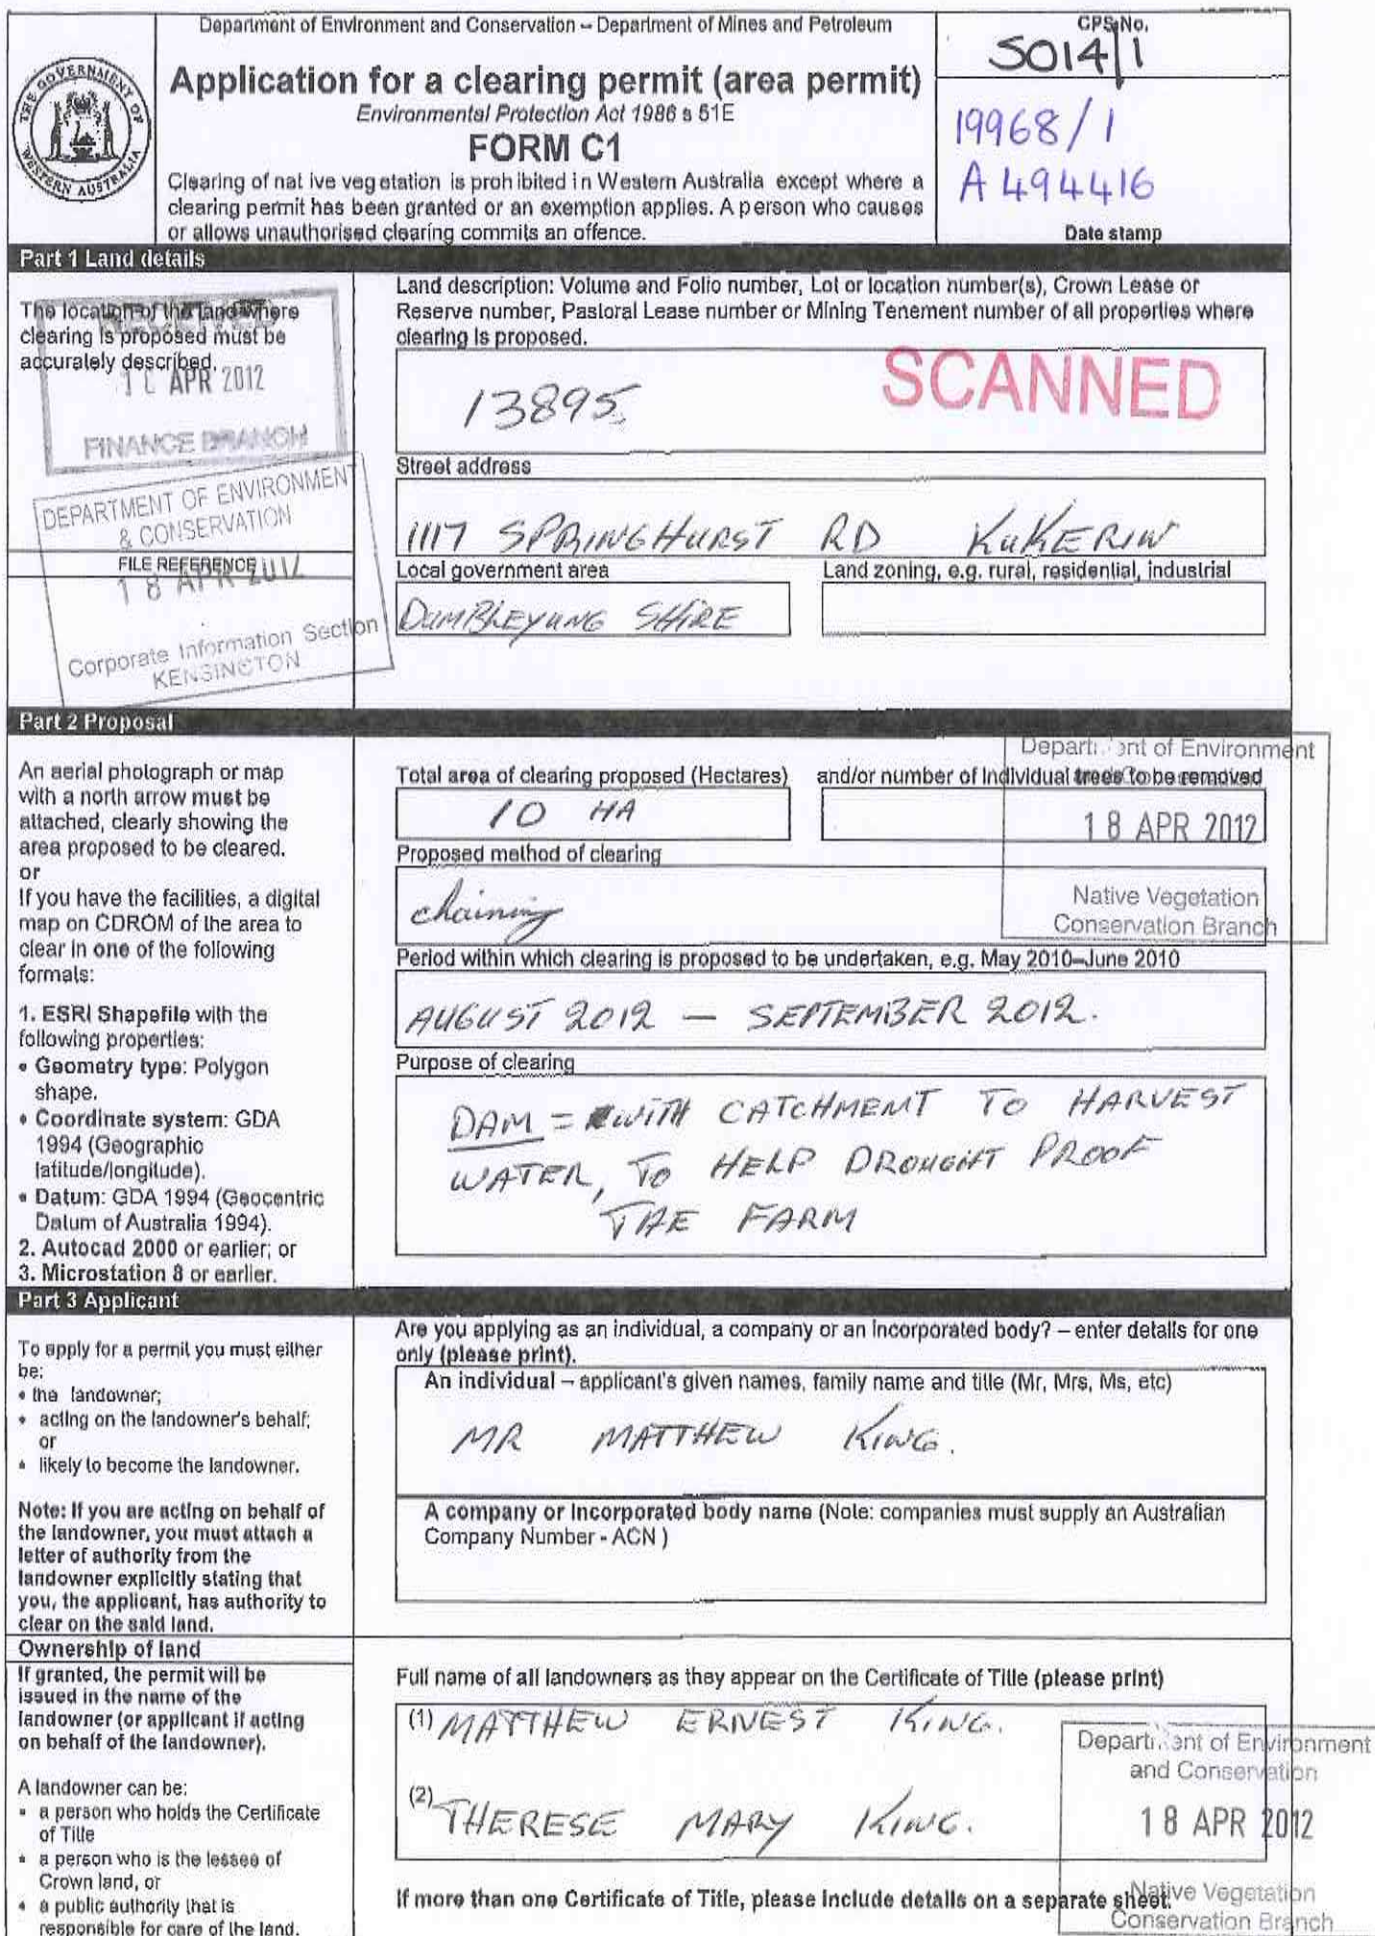 Department of Environment and Conservation – Department of Mines and Petroleum
Application for a clearing permit (area permit)
Environmental Protection Act 1986 s 51E
FORM C1
Clearing of nat ive vegetation is prohibited in Western Australia except where a
clearing permit has been granted or an exemption applies. A person who causes
or allows unauthorised clearing commits an offence.
THE GOVERNMENT OF
WESTERN AUSTRALIA
CPS No.
5014/1
19968/1
A494416
Date stamp
Part 1 Land details
The location of the land where
clearing is proposed must be
accurately described.
RECEIVED
APR 2012
FINANCE BRANCH
DEPARTMENT OF ENVIRONMENT
& CONSERVATION
FILE REFERENCE
18 APR 2012
Corporate Information Section
KENSINGTON
Land description: Volume and Folio number, Lot or location number(s), Crown Lease or
Reserve number, Pastoral Lease number or Mining Tenement number of all properties where
clearing is proposed.
13895
SCANNED
Street address
1117 SPRINGHURST RD KUKERIN
Local government area
Land zoning, e.g. rural, residential, industrial
DUMBLEYUNG SHIRE
Part 2 Proposal
An aerial photograph or map
with a north arrow must be
attached, clearly showing the
area proposed to be cleared.
or
If you have the facilities, a digital
map on CDROM of the area to
clear in one of the following
formats:
1. ESRI Shapefile with the
following properties:
• Geometry type: Polygon
shape.
• Coordinate system: GDA
1994 (Geographic
latitude/longitude).
• Datum: GDA 1994 (Geocentric
Datum of Australia 1994).
2. Autocad 2000 or earlier; or
3. Microstation 8 or earlier.
Total area of clearing proposed (Hectares)
and/or number of individual trees to be removed
10 HA
Department of Environment
18 APR 2012
Native Vegetation
Conservation Branch
Proposed method of clearing
chaining
Period within which clearing is proposed to be undertaken, e.g. May 2010–June 2010
AUGUST 2012 – SEPTEMBER 2012.
Purpose of clearing
DAM = WITH CATCHMENT TO HARVEST
WATER, TO HELP DROUGHT PROOF
THE FARM
Part 3 Applicant
To apply for a permit you must either
be:
• the landowner;
• acting on the landowner's behalf;
or
• likely to become the landowner.
Note: If you are acting on behalf of
the landowner, you must attach a
letter of authority from the
landowner explicitly stating that
you, the applicant, has authority to
clear on the said land.
Are you applying as an individual, a company or an incorporated body? – enter details for one
only (please print).
An individual – applicant's given names, family name and title (Mr, Mrs, Ms, etc)
MR MATTHEW KING.
A company or incorporated body name (Note: companies must supply an Australian
Company Number - ACN )
Ownership of land
If granted, the permit will be
issued in the name of the
landowner (or applicant if acting
on behalf of the landowner).
A landowner can be:
• a person who holds the Certificate
of Title
• a person who is the lessee of
Crown land, or
• a public authority that is
responsible for care of the land.
Full name of all landowners as they appear on the Certificate of Title (please print)
(1) MATTHEW ERNEST KING.
(2) THERESE MARY KING.
If more than one Certificate of Title, please include details on a separate sheet.
Department of Environment
and Conservation
18 APR 2012
Native Vegetation
Conservation Branch